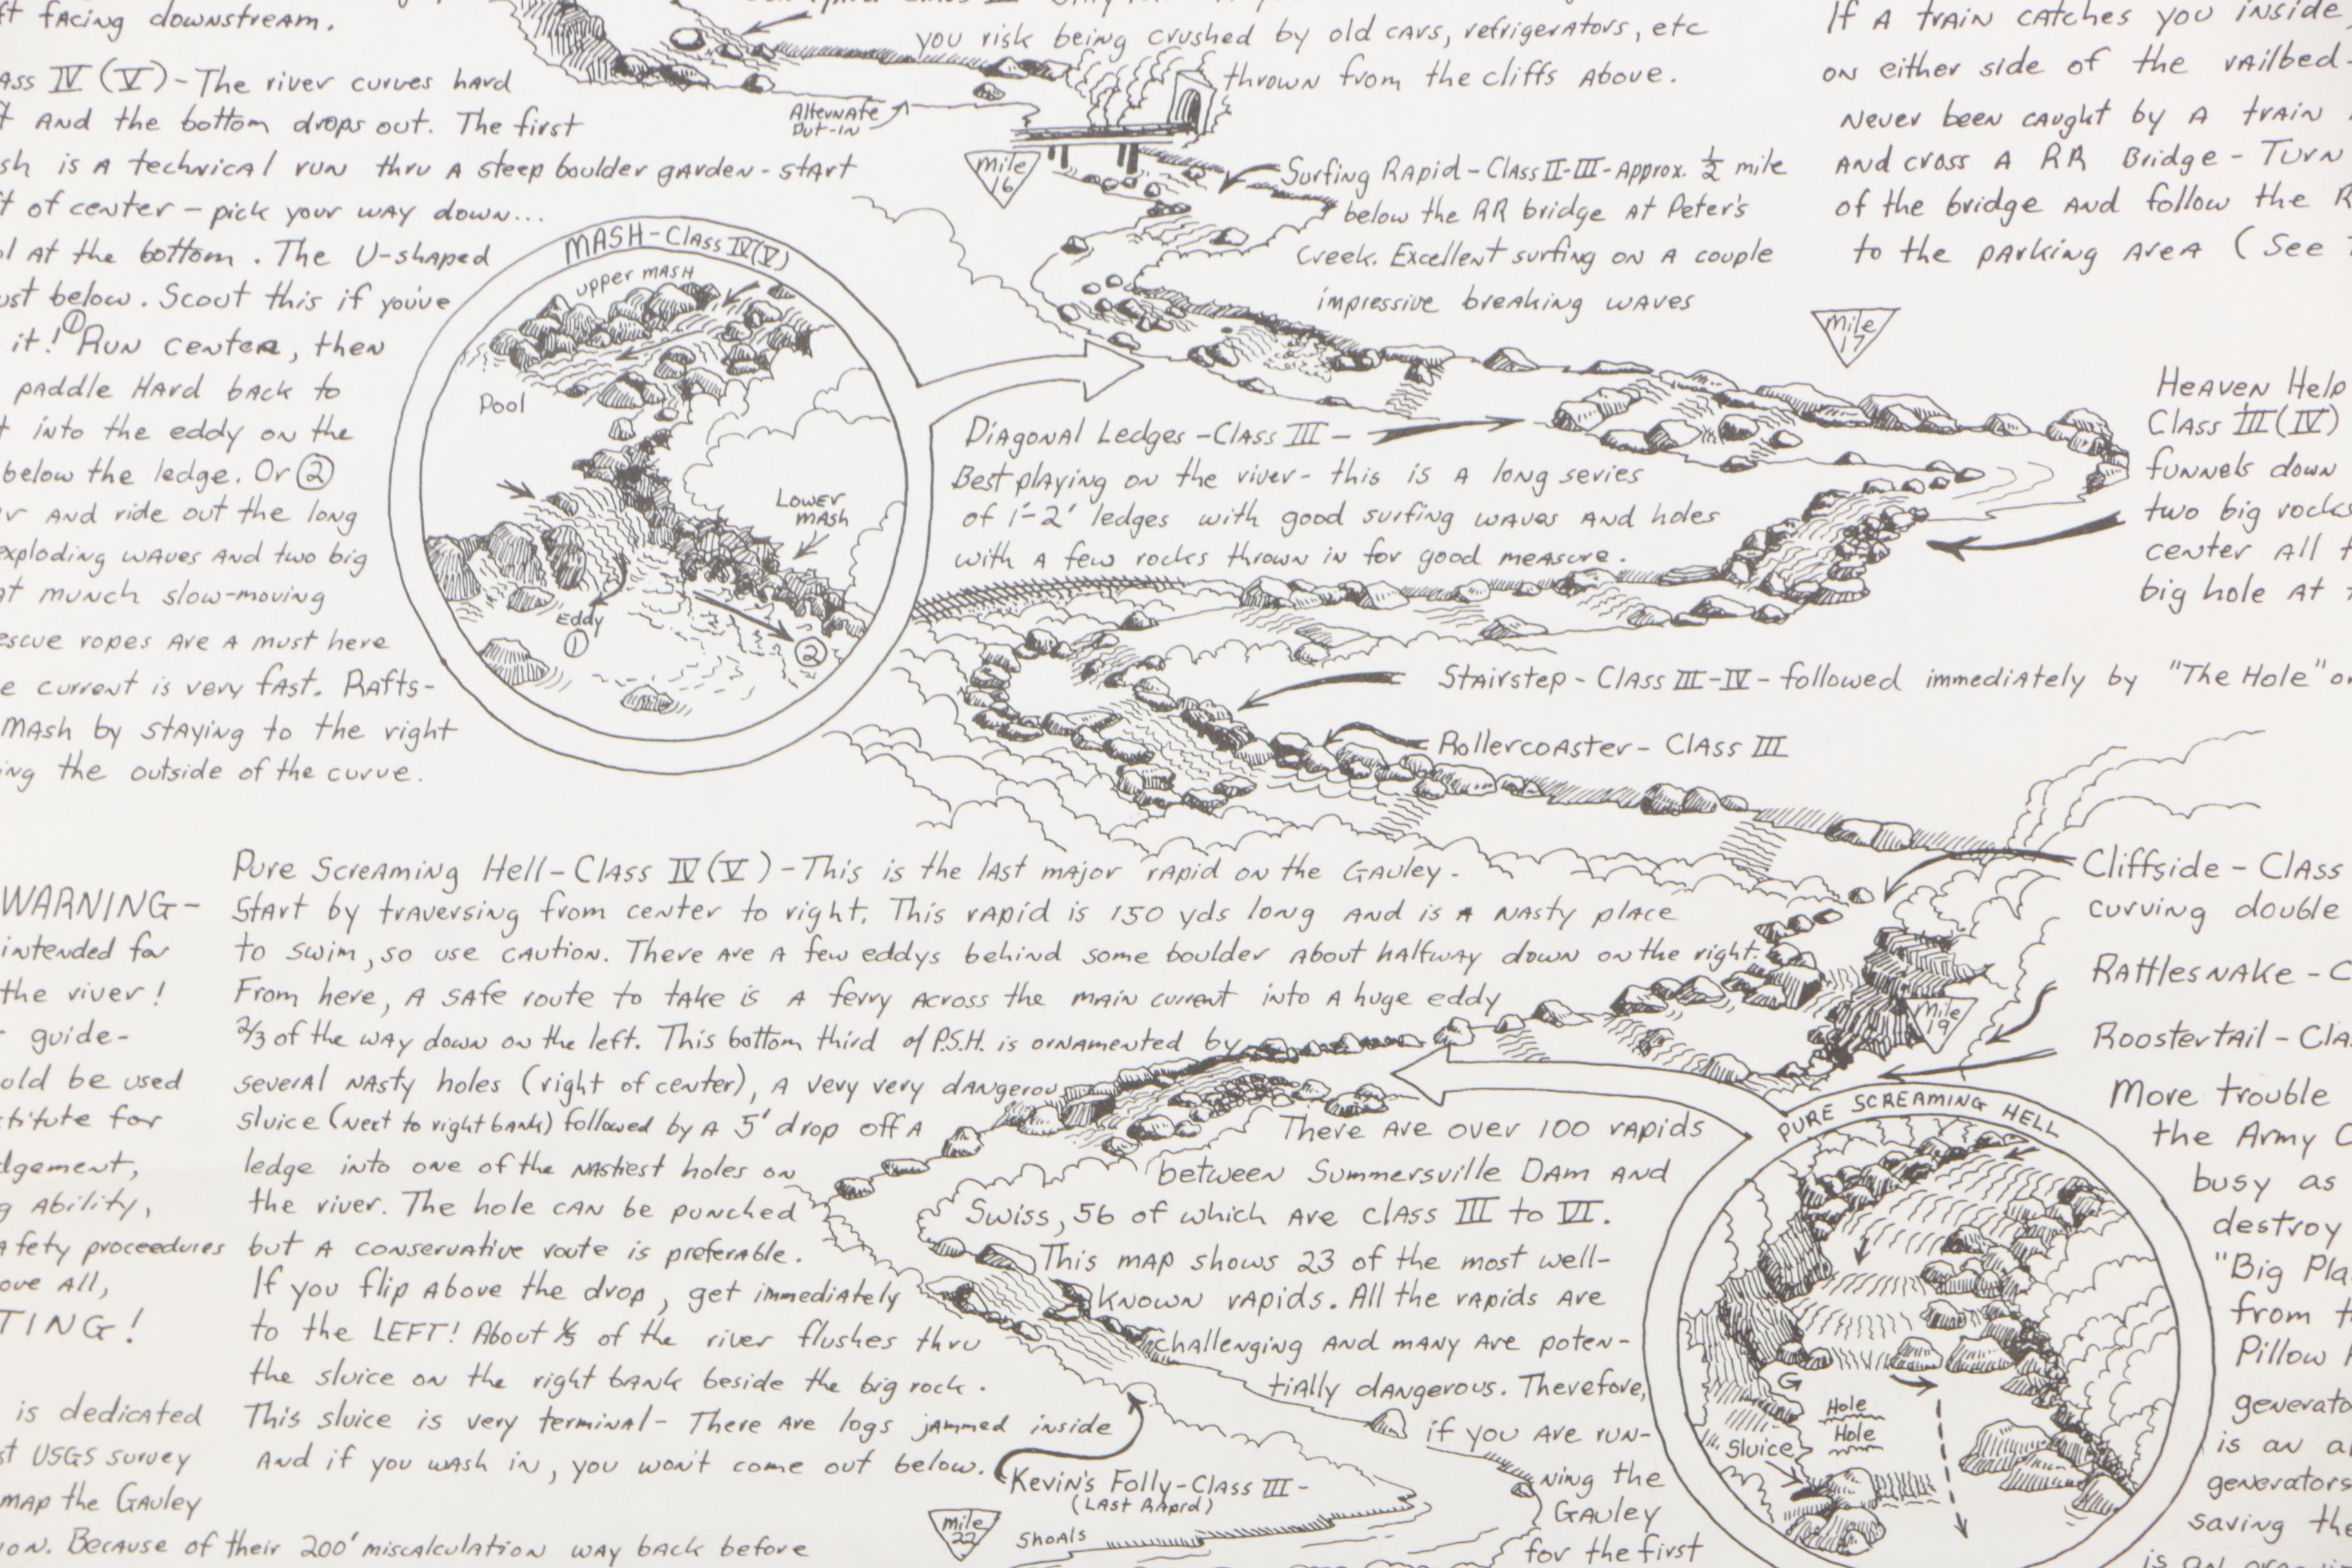 ft facing downstream.
Class IV (V) - The river curves hard
And the bottom drops out. The first
is a technical run thru a steep boulder garden - start
of center - pick your way down...
at the bottom. The U-shaped
just below. Scout this if you've
it! ① Run center, then
paddle HARD back to
into the eddy on the
below the ledge. Or ②
and ride out the long
exploding waves and two big
munch slow-moving
rescue ropes are a must here
current is very fast. Rafts-
Mash by staying to the right
the outside of the curve.
you risk being crushed by old cars, refrigerators, etc
thrown from the cliffs above.
Alternate
Put-in
Mile
16
Surfing Rapid - Class II-III - Approx. ½ mile
below the RR bridge at Peter's
Creek. Excellent surfing on a couple
impressive breaking waves
If a train catches you inside,
on either side of the railbed-
Never been caught by a train
and cross a RR Bridge - Turn
of the bridge and follow the
to the parking area (See
Mile
17
MASH - Class IV (V)
upper MASH
Pool
Lower
Mash
Eddy
①
②
Diagonal Ledges - Class III -
Best playing on the river - this is a long series
of 1'-2' ledges with good surfing waves and holes
with a few rocks thrown in for good measure.
Heaven Help
Class III (IV)
funnels down
two big rocks
center all
big hole at
Stairstep - Class III-IV - followed immediately by "The Hole"
Rollercoaster - Class III
Cliffside - Class
curving double
Rattlesnake -
Roostertail -
Mile
19
WARNING -
intended for
the river!
guide-
be used
for
ability,
safety proceedures
above all,
is dedicated
USGS survey
map the Gauley
Because of their 200' miscalculation way back before
Pure Screaming Hell - Class IV (V) - This is the last major rapid on the Gauley.
Start by traversing from center to right. This rapid is 150 yds long and is a nasty place
to swim, so use caution. There are a few eddys behind some boulder about halfway down on the right.
From here, a safe route to take is a ferry across the main current into a huge eddy
2/3 of the way down on the left. This bottom third of P.S.H. is ornamented by
several nasty holes (right of center), a very very dangerou
sluice (next to right bank) followed by a 5' drop off a
ledge into one of the nastiest holes on
the river. The hole can be punched
but a conservative route is preferable.
If you flip above the drop, get immediately
to the LEFT! About 1/3 of the river flushes thru
the sluice on the right bank beside the big rock.
This sluice is very terminal - There are logs jammed inside
and if you wash in, you won't come out below.
There are over 100 rapids
between Summersville Dam and
Swiss, 56 of which are class III to VI.
This map shows 23 of the most well-
known rapids. All the rapids are
challenging and many are poten-
tially dangerous. Therefore,
if you are run-
ning the
Gauley
for the first
Kevin's Folly - Class III -
(Last Rapid)
Mile
22
Shoals
PURE SCREAMING HELL
G
Hole
Hole
Sluice
More trouble
the Army
busy as
destroy
"Big
from
Pillow
is an
generators
saving the
is an